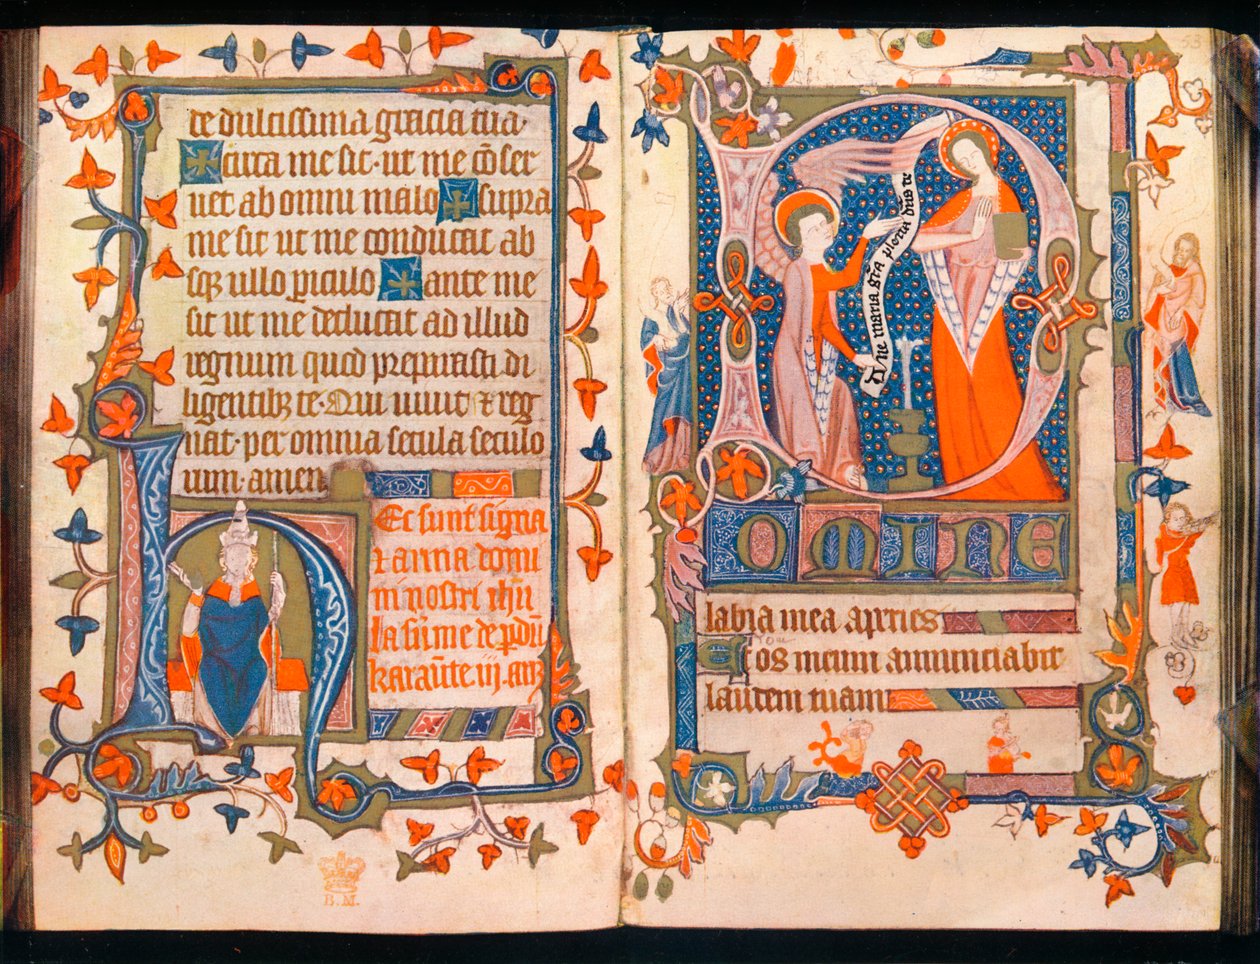 de dulcissima gracia tua·
✠ circa me sit· ut me cōser
uet ab omni malo ✠ supra
me sit ut me conducat ab
sqꝫ ullo ꝑiculo ✠ ante me
sit ut me deducat ad illud
regnum quod preparasti di
ligentibꝫ te· Qui uiuit ⁊ reg
nat· per omnia secula seculo
rum· amen
HEc sunt signa
⁊ arma domi
ni nostri ihū
B.M.
53
Aue maria gr̄a plena dn̄s te
DOMINE
labia mea aperies
Et os meum annunciabit
laudem tuam